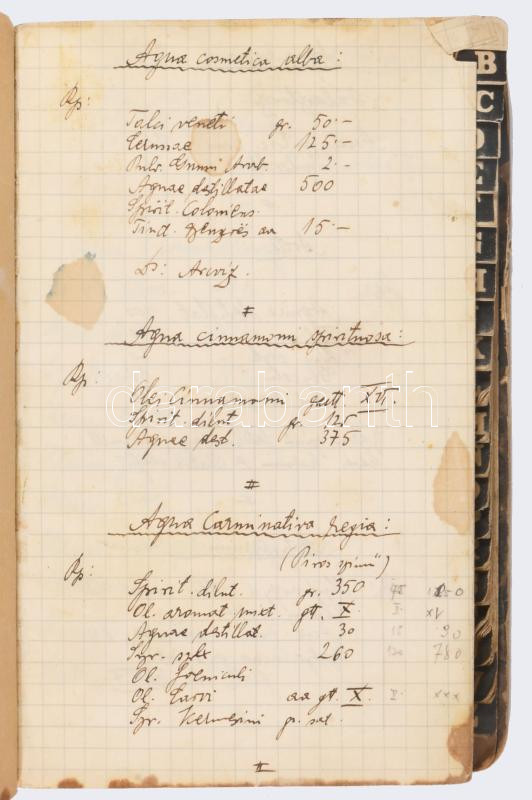 Aquae cosmetica alba:
Rp:
Talci veneti gr. 50.–
Cerussae 125.–
Pulv. Gummi Arab. 2.–
Aquae destillatae 500
Spirit. Coloniens.
Tinct. aa 15.–
Ds: Arcvíz.
#
Aqua cinnamomi spirituosa:
Rp:
Olei Cinnamomi gutt
Spirit. dilut gr. 125
Aquae dest. 375
#
Aqua Carminativa regia:
(Piros színű)
Rp:
Spirit. dilut. gr. 350
Ol. aromat. mixt. gtt. X
Aquae destillat. 30 90
Syr. splx 260 780
Ol. Foeniculi
Ol. Carvi aa gtt. X. V. xxx
Syr. Kermesini gr. sat.
#
B
C
darabanth